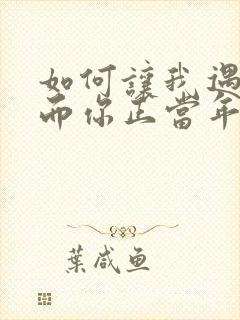 如何讓我遇
而你正當年
葉咸鱼